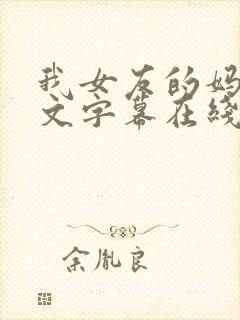 我女友的妈
文字幕在线
余胤良